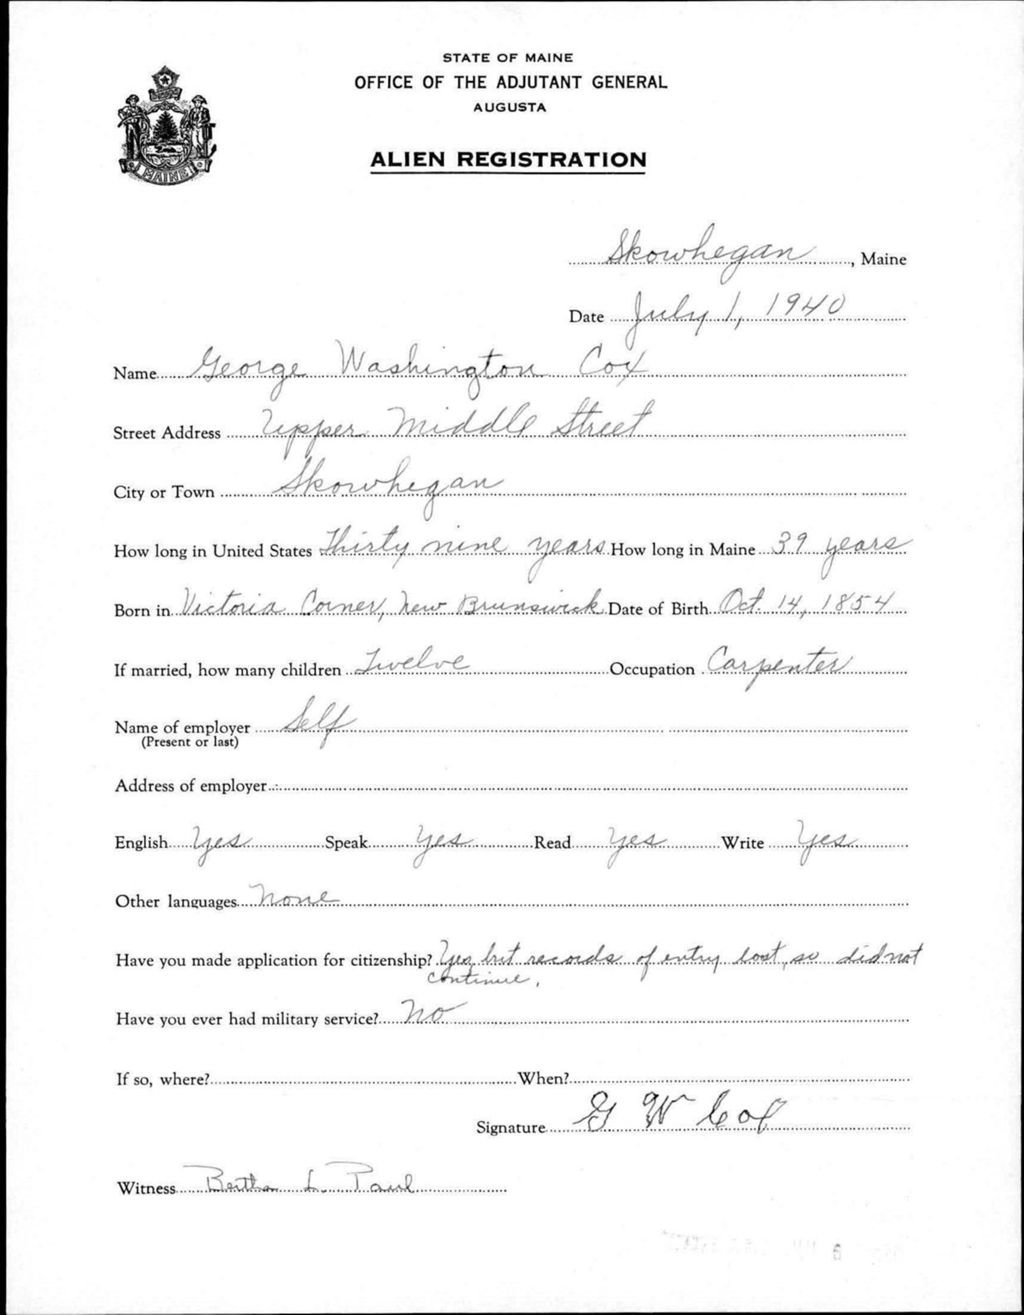 STATE OF MAINE
OFFICE OF THE ADJUTANT GENERAL
AUGUSTA
ALIEN REGISTRATION
MAINE
Skowhegan, Maine
Date July 1, 1940
Name George Washington Cox
Street Address Upper Middle Street
City or Town Skowhegan
How long in United States Thirty nine years How long in Maine 39 years
Born in Victoria Corner, New Brunswick Date of Birth Oct. 14, 1854
If married, how many children Twelve Occupation Carpenter
Name of employer Self
(Present or last)
Address of employer
English Yes Speak Yes Read Yes Write Yes
Other languages None
Have you made application for citizenship? Yes, but records of entry lost, so did not
continue.
Have you ever had military service? No
If so, where? When?
Signature G W Cox
Witness Bertha L. Paul